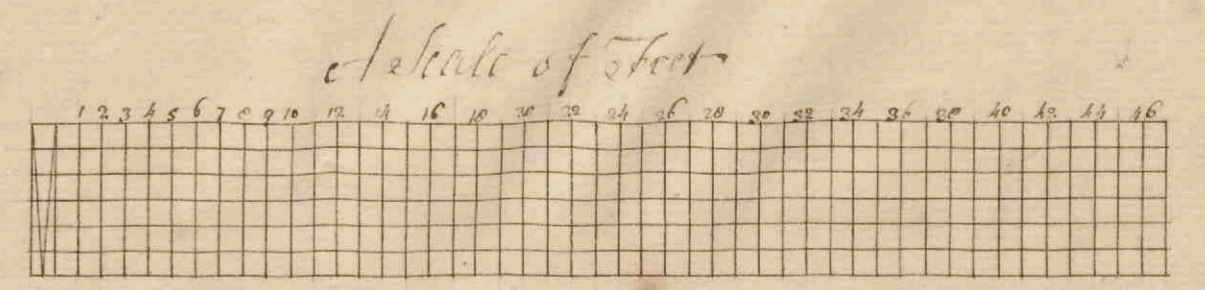 A Scale of Feet
1 2 3 4 5 6 7 8 9 10 12 14 16 18 20 22 24 26 28 30 32 34 36 38 40 42 44 46